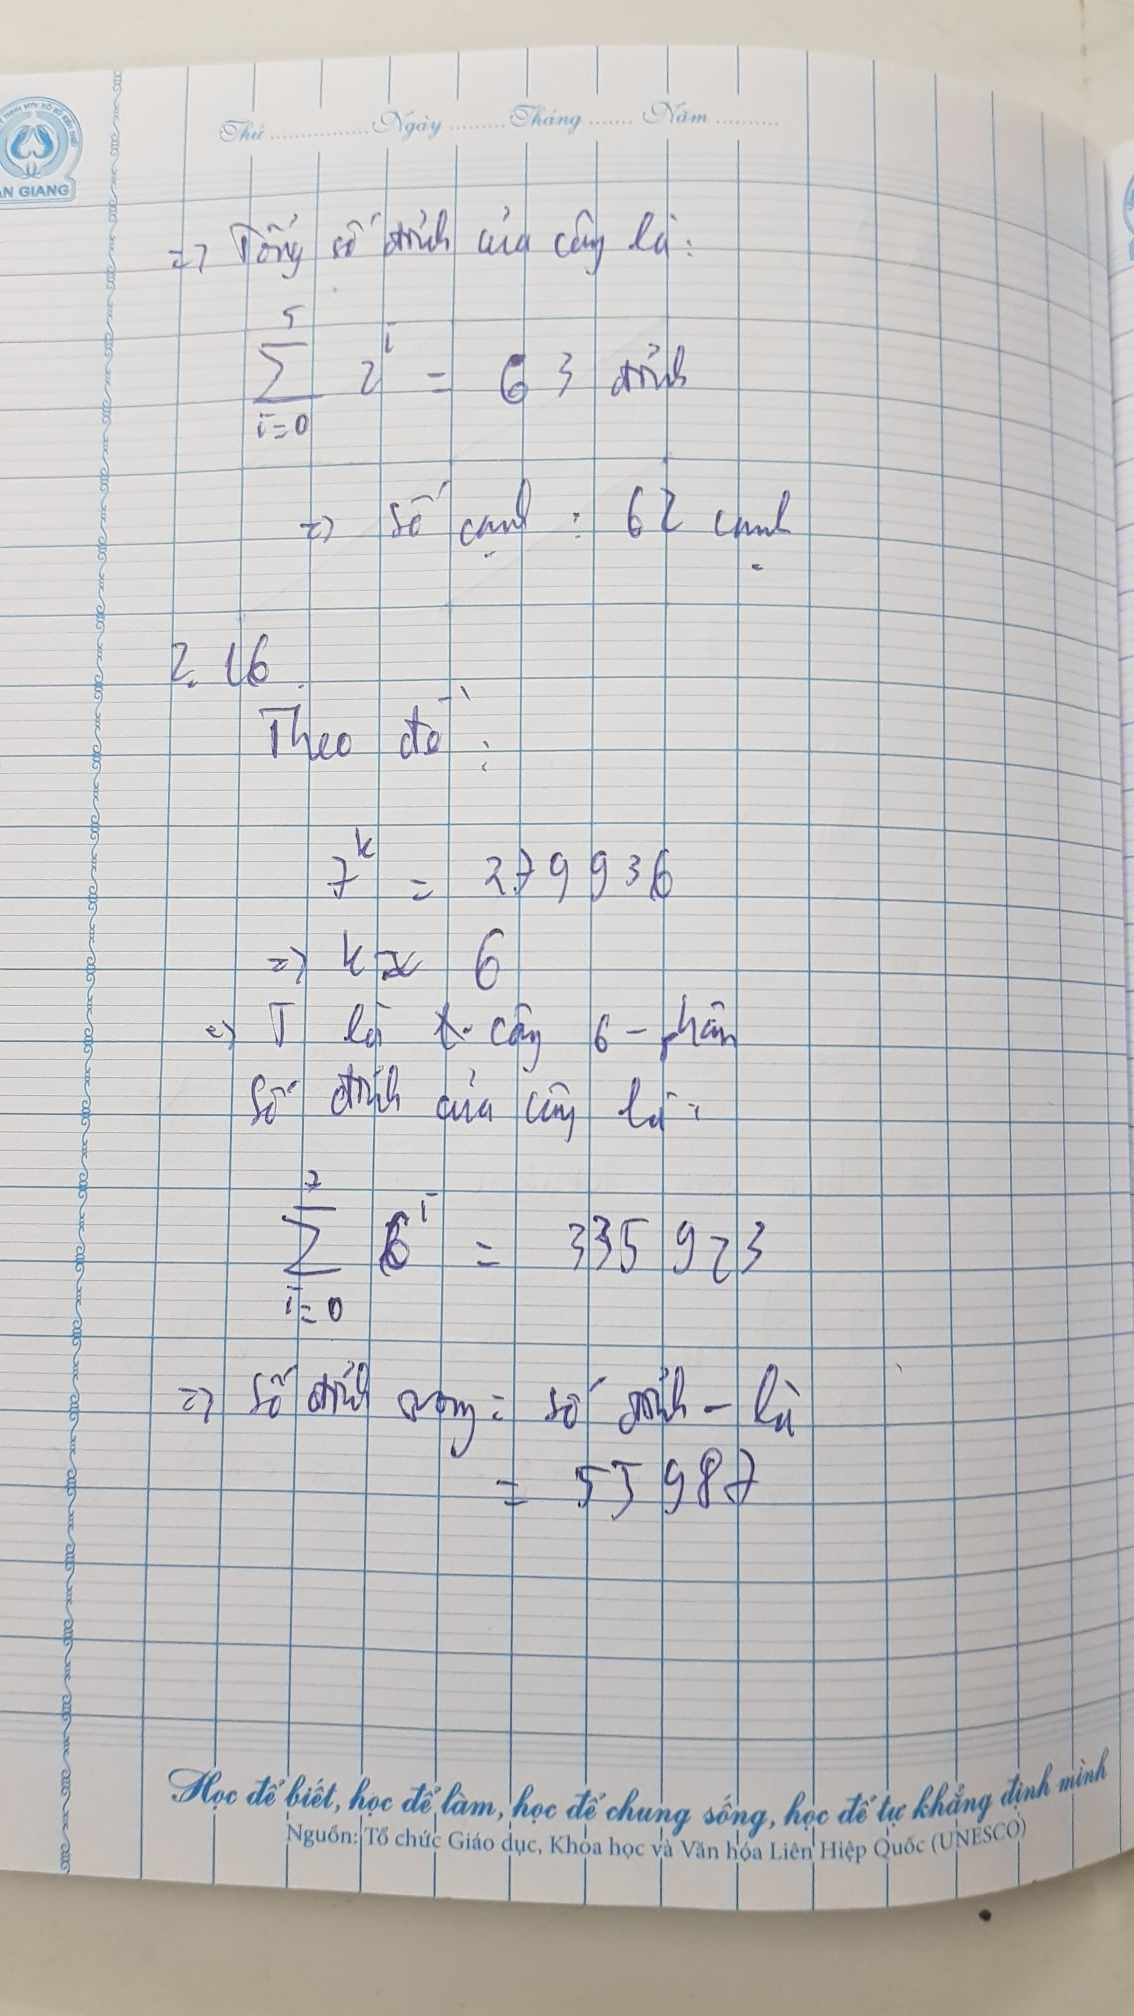 AN GIANG
Thứ ............... Ngày ......... Tháng ....... Năm ..........
=> Tổng số đỉnh của cây là:
5
∑ 2^i = 63 đỉnh
i=0
=> số cạnh : 62 cạnh
2.16
Theo đề :
7^k = 279936
=> k = 6
=> T là cây 6 - phân
Số đỉnh của cây là :
7
∑ 6^i = 335923
i=0
=> số đỉnh trong = số đỉnh - lá
= 55987
Học để biết, học để làm, học để chung sống, học để tự khẳng định mình
Nguồn: Tổ chức Giáo dục, Khoa học và Văn hóa Liên Hiệp Quốc (UNESCO)